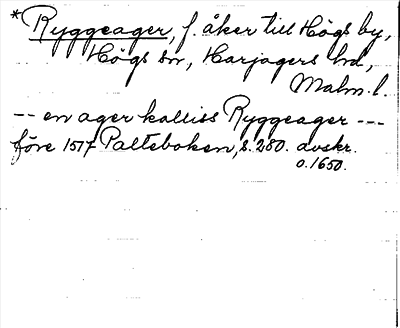 *Ryggeager, f. åker till Högs by,
Högs sn, Harjagers hd,
Malm. l.
-- en ager kalliss Ryggeager ---
före 1517 Palteboken, s. 280. avskr.
o. 1650.